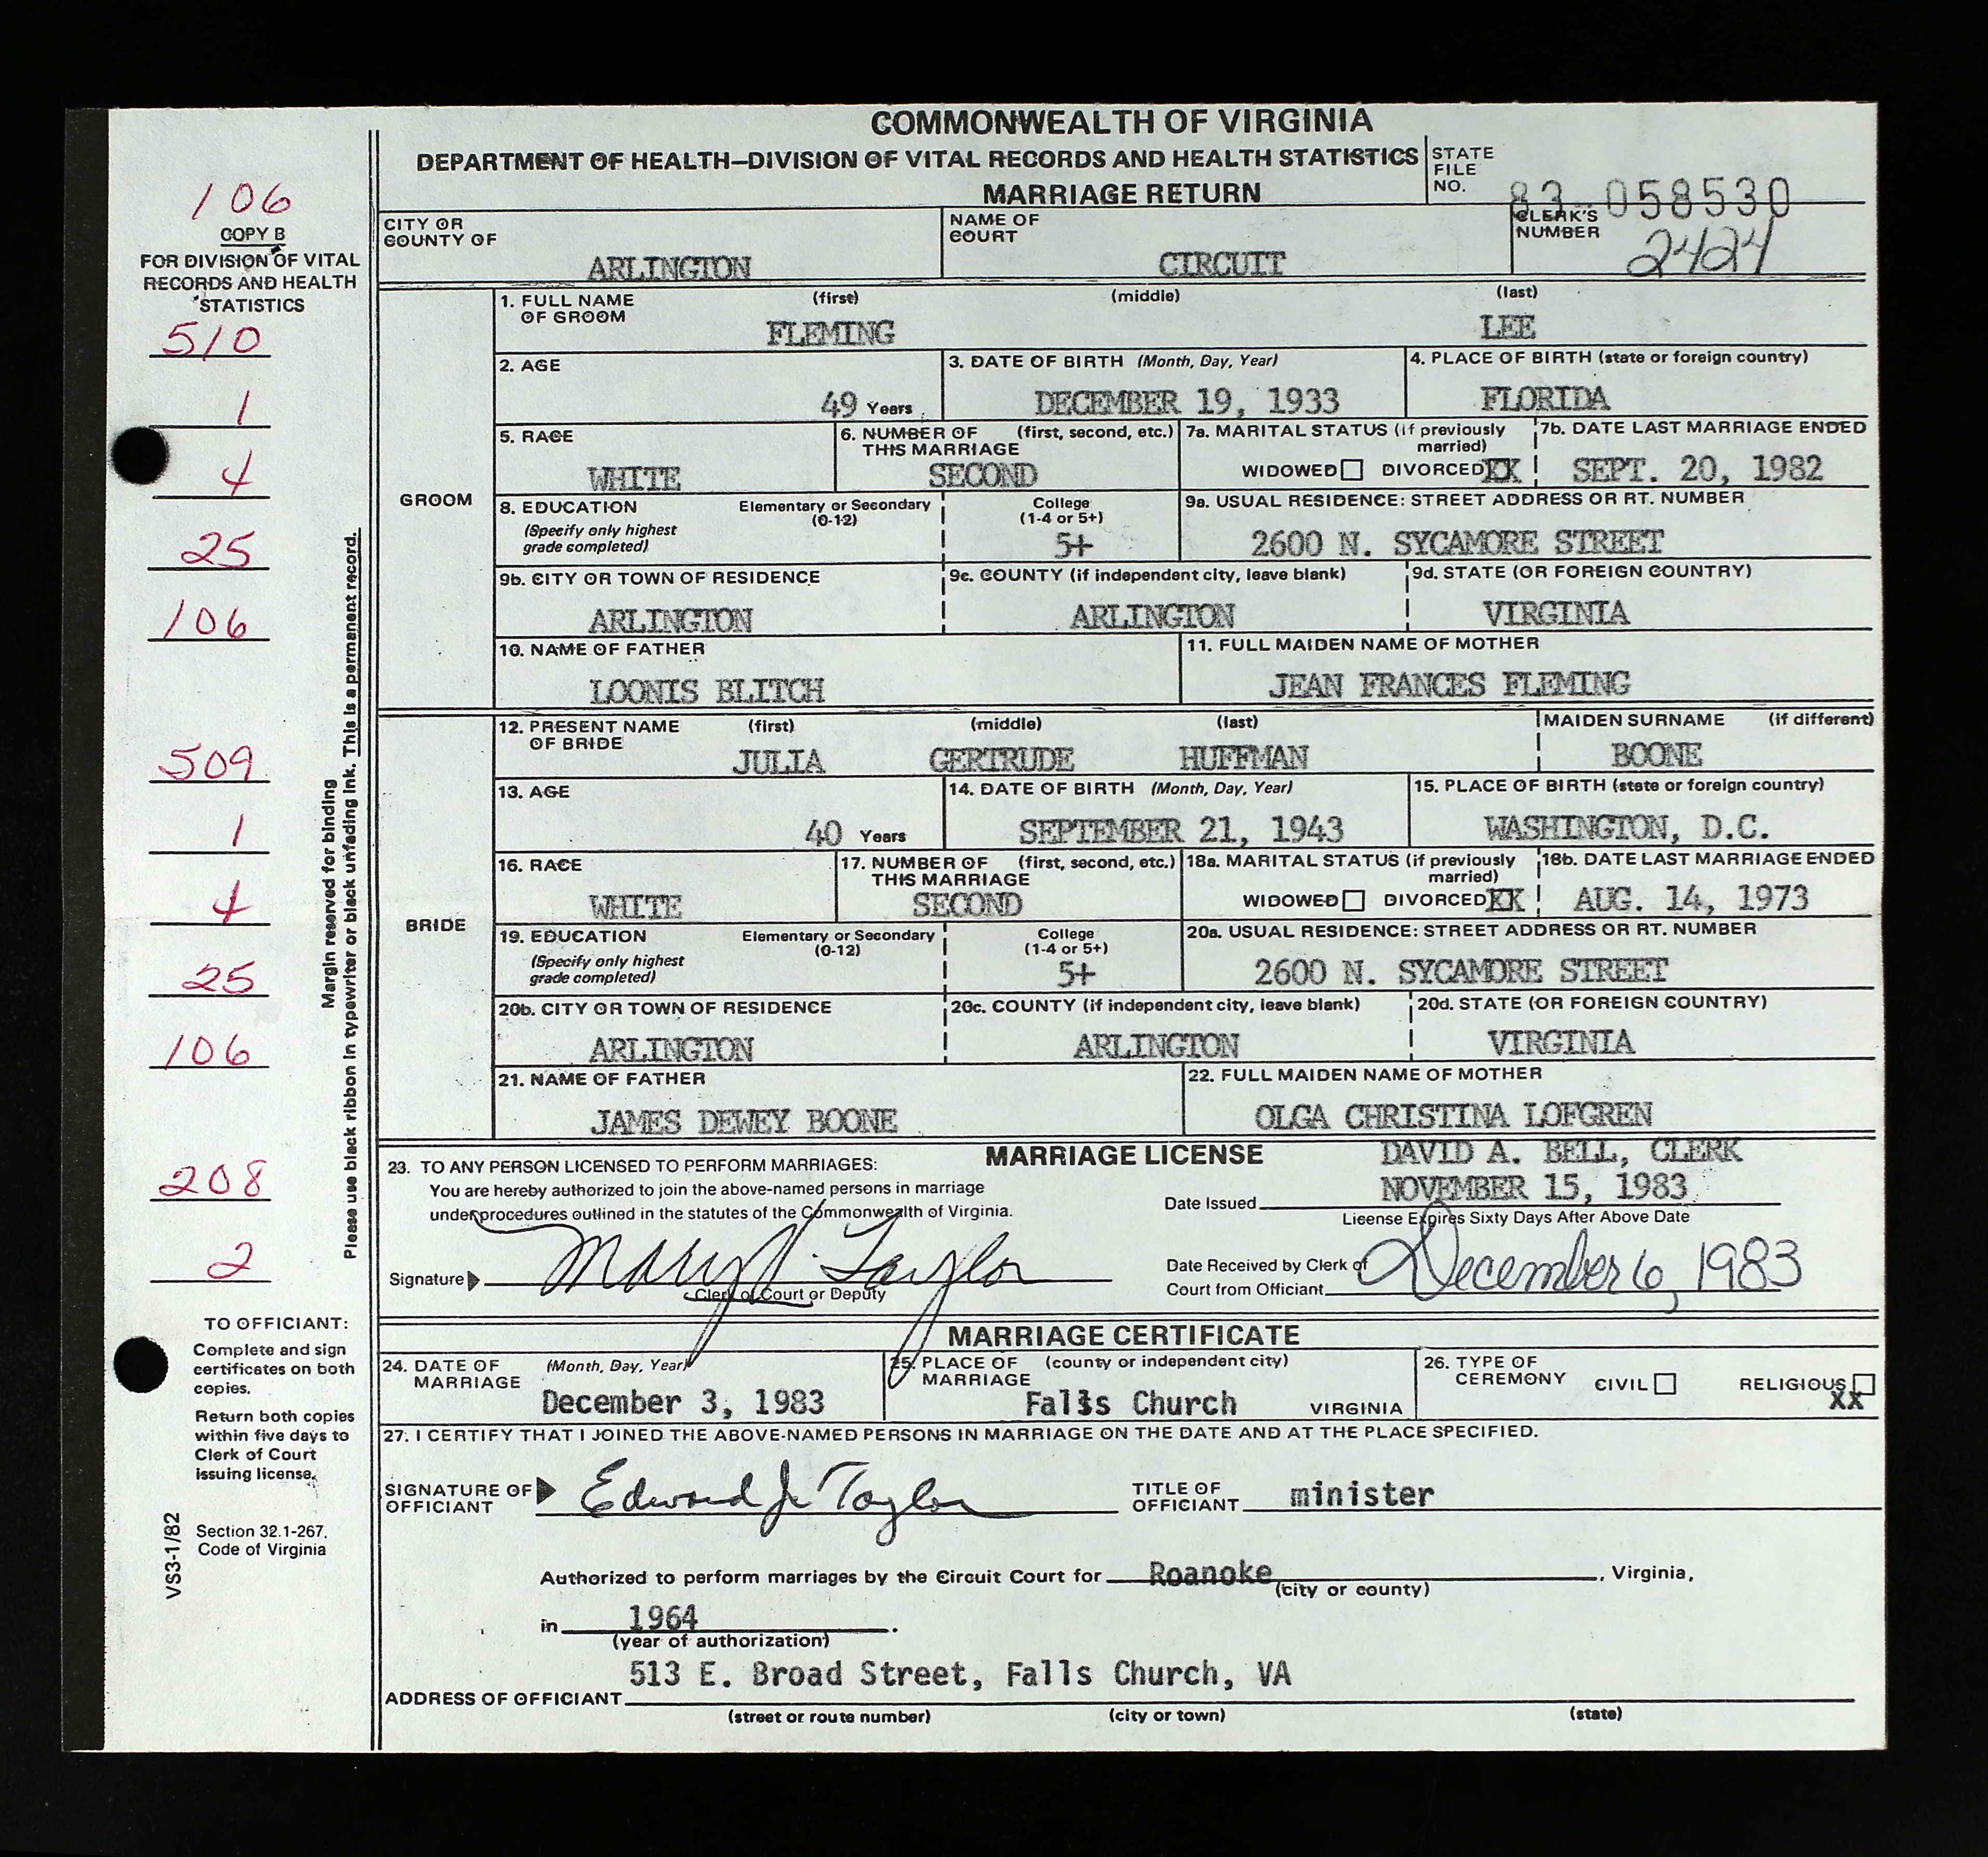 COMMONWEALTH OF VIRGINIA
DEPARTMENT OF HEALTH—DIVISION OF VITAL RECORDS AND HEALTH STATISTICS
MARRIAGE RETURN
STATE FILE NO. 83-058530
106
COPY B
FOR DIVISION OF VITAL
RECORDS AND HEALTH
STATISTICS
510
1
4
25
106
509
1
4
25
106
208
2
Margin reserved for binding
Please use black ribbon in typewriter or black unfading ink. This is a permanent record.
TO OFFICIANT:
Complete and sign
certificates on both
copies.
Return both copies
within five days to
Clerk of Court
issuing license.
Section 32.1-267,
Code of Virginia
VS3-1/82
CITY OR COUNTY OF ARLINGTON
NAME OF COURT CIRCUIT
CLERK'S NUMBER 2424
GROOM
1. FULL NAME OF GROOM (first) (middle) (last)
FLEMING LEE
2. AGE 49 Years
3. DATE OF BIRTH (Month, Day, Year) DECEMBER 19, 1933
4. PLACE OF BIRTH (state or foreign country) FLORIDA
5. RACE WHITE
6. NUMBER OF THIS MARRIAGE (first, second, etc.) SECOND
7a. MARITAL STATUS (if previously married) WIDOWED DIVORCED XX
7b. DATE LAST MARRIAGE ENDED SEPT. 20, 1982
8. EDUCATION (Specify only highest grade completed) Elementary or Secondary (0-12) College (1-4 or 5+) 5+
9a. USUAL RESIDENCE: STREET ADDRESS OR RT. NUMBER 2600 N. SYCAMORE STREET
9b. CITY OR TOWN OF RESIDENCE ARLINGTON
9c. COUNTY (if independent city, leave blank) ARLINGTON
9d. STATE (OR FOREIGN COUNTRY) VIRGINIA
10. NAME OF FATHER LOONIS BLITCH
11. FULL MAIDEN NAME OF MOTHER JEAN FRANCES FLEMING
BRIDE
12. PRESENT NAME OF BRIDE (first) (middle) (last) MAIDEN SURNAME (if different)
JULIA GERTRUDE HUFFMAN BOONE
13. AGE 40 Years
14. DATE OF BIRTH (Month, Day, Year) SEPTEMBER 21, 1943
15. PLACE OF BIRTH (state or foreign country) WASHINGTON, D.C.
16. RACE WHITE
17. NUMBER OF THIS MARRIAGE (first, second, etc.) SECOND
18a. MARITAL STATUS (if previously married) WIDOWED DIVORCED XX
18b. DATE LAST MARRIAGE ENDED AUG. 14, 1973
19. EDUCATION (Specify only highest grade completed) Elementary or Secondary (0-12) College (1-4 or 5+) 5+
20a. USUAL RESIDENCE: STREET ADDRESS OR RT. NUMBER 2600 N. SYCAMORE STREET
20b. CITY OR TOWN OF RESIDENCE ARLINGTON
20c. COUNTY (if independent city, leave blank) ARLINGTON
20d. STATE (OR FOREIGN COUNTRY) VIRGINIA
21. NAME OF FATHER JAMES DEWEY BOONE
22. FULL MAIDEN NAME OF MOTHER OLGA CHRISTINA LOFGREN
MARRIAGE LICENSE
DAVID A. BELL, CLERK
23. TO ANY PERSON LICENSED TO PERFORM MARRIAGES:
You are hereby authorized to join the above-named persons in marriage
under procedures outlined in the statutes of the Commonwealth of Virginia.
Date Issued NOVEMBER 15, 1983
License Expires Sixty Days After Above Date
Signature Mary J. Taylor
Clerk of Court or Deputy
Date Received by Clerk of
Court from Officiant December 6, 1983
MARRIAGE CERTIFICATE
24. DATE OF MARRIAGE (Month, Day, Year) December 3, 1983
25. PLACE OF MARRIAGE (county or independent city) Falls Church VIRGINIA
26. TYPE OF CEREMONY CIVIL RELIGIOUS XX
27. I CERTIFY THAT I JOINED THE ABOVE-NAMED PERSONS IN MARRIAGE ON THE DATE AND AT THE PLACE SPECIFIED.
SIGNATURE OF OFFICIANT Edward Jr Taylor
TITLE OF OFFICIANT minister
Authorized to perform marriages by the Circuit Court for Roanoke, Virginia,
(city or county)
in 1964.
(year of authorization)
513 E. Broad Street, Falls Church, VA
ADDRESS OF OFFICIANT
(street or route number) (city or town) (state)